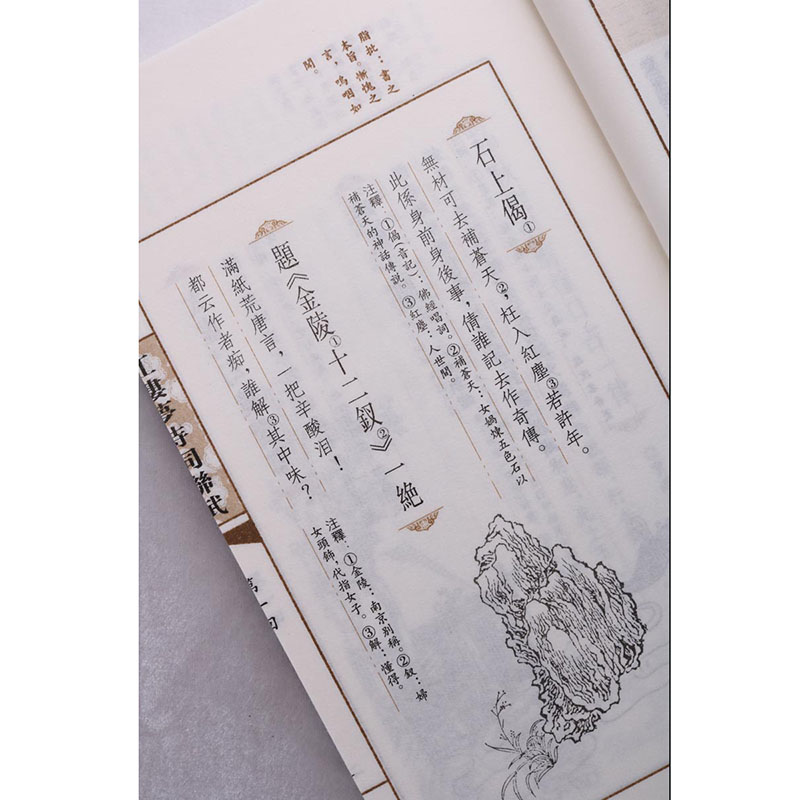 脂批：書之
本旨。慚愧之
言，嗚咽如
聞。
石上偈①
無材可去補蒼天②，枉入紅塵③若許年。
此係身前身後事，倩誰記去作奇傳。
注釋：①偈（音記）：佛經唱詞。②補蒼天：女媧煉五色石以
補蒼天的神話傳說。③紅塵：人世間。
題《金陵①十二釵②》一絶
滿紙荒唐言，一把辛酸泪！
都云作者痴，誰解③其中味？
注釋：①金陵：南京別稱。②釵：婦
女頭飾，代指女子。③解：懂得。
樓夢